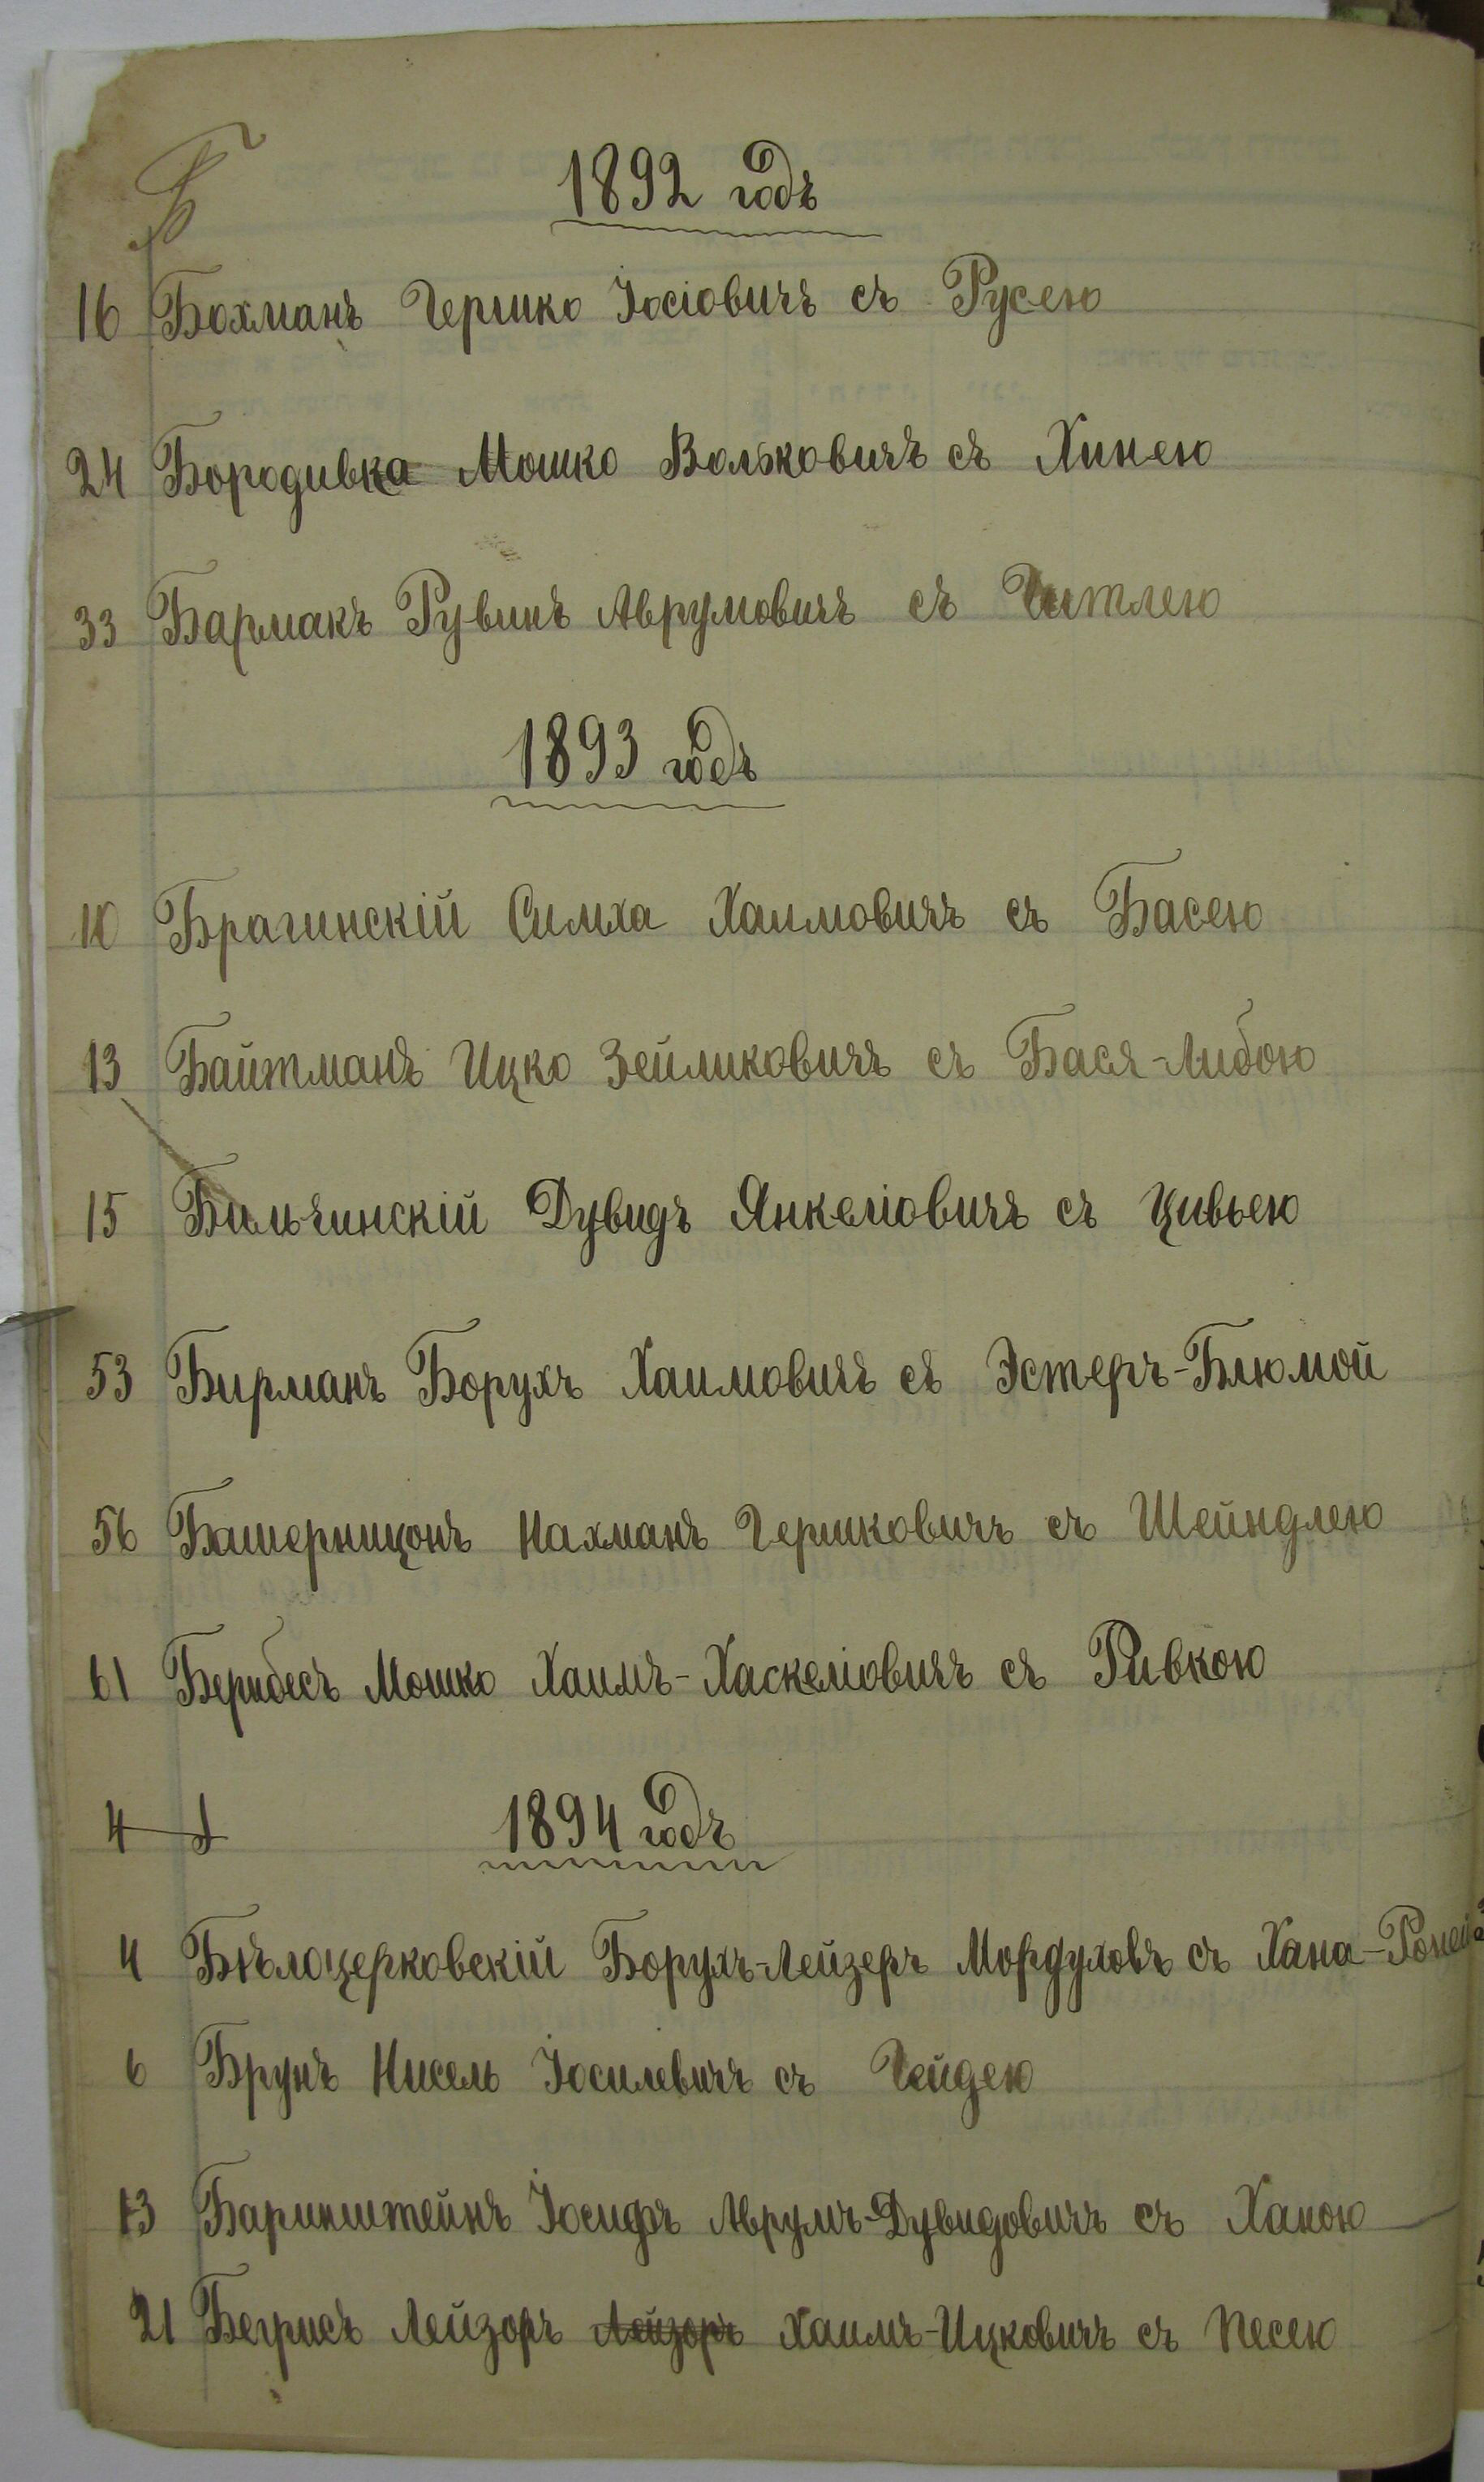 Б
1892 годъ
16 Бохманъ Гершко Іосіовичъ съ Русею
24 Бородивка Мошко Вольковичъ съ Хинею
33 Бармакъ Рувинъ Аврумовичъ съ Гитлею
1893 годъ
10 Брагинскій Симха Хаимовичъ съ Басею
13 Байтманъ Ицко Зейликовичъ съ Бася-Либою
15 Бильчинскій Дувидъ Янкеліовичъ съ Цивьею
53 Бирманъ Борухъ Хаимовичъ съ Эстеръ-Блюмой
56 Нахманъ Гершковичъ съ Шейндлею
61 Мошко Хаимъ-Хаскеліовичъ съ Ривкою
4 1894 годъ
4 Бѣлоцерковскій Борухъ-Лейзеръ Мордуховъ съ Хана-
6 Брунъ Нисель Іосилевичъ съ Гейдею
13 Баринштейнъ Іосифъ Аврумъ-Дувидовичъ съ Ханою
21 Лейзоръ Лейзоръ Хаимъ-Ицковичъ съ Песею